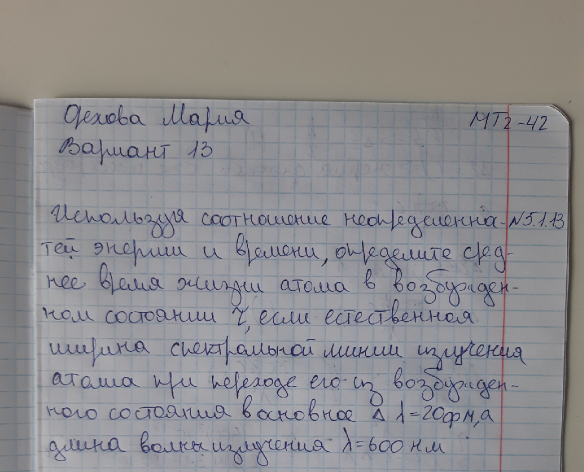 Орехова Мария МТ2-42
Вариант 13
Используя соотношение неопределенно- №5.1.13
тей энергии и времени, определите сред-
нее время жизни атома в возбужден-
ном состоянии τ, если естественная
ширина спектральной линии излучения
атома при переходе его из возбужден-
ного состояния в основное Δ λ=20фм, а
длина волны излучения λ=600 нм